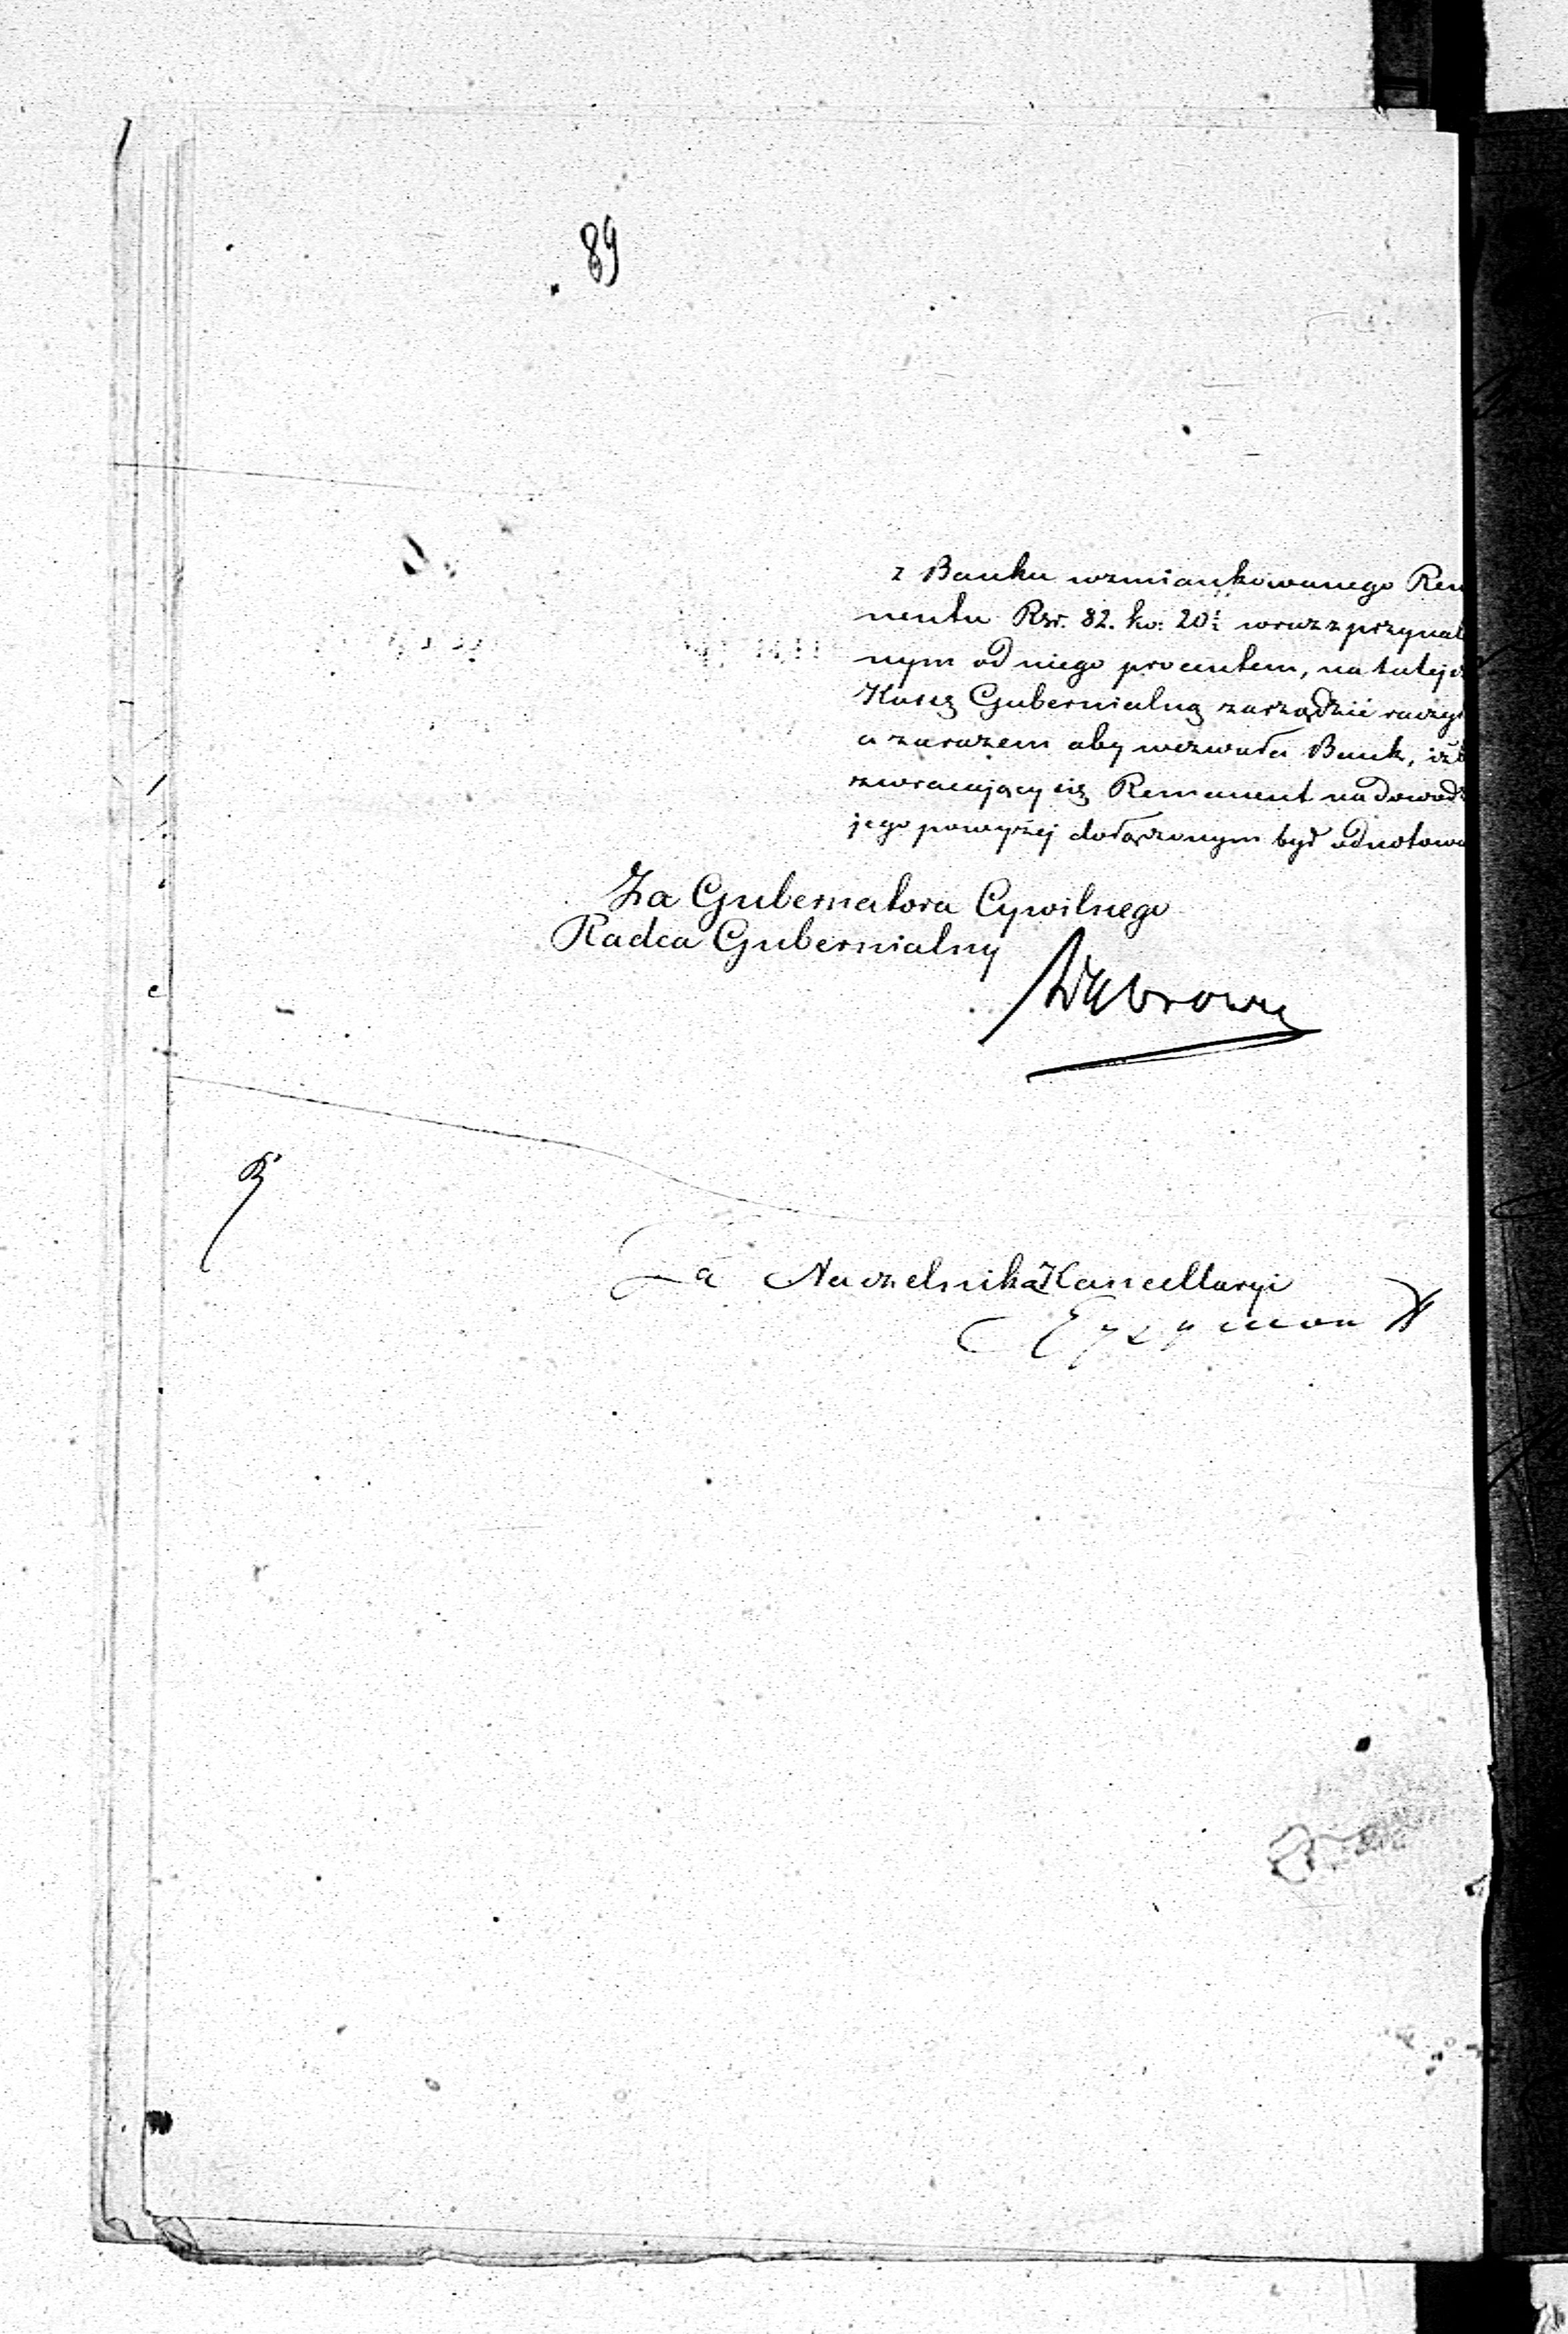 89
z Banku wzmiankowanego Rem
nentu Rsr. 82. ko: 20½ wraz z przynal
nym od niego procentem, na tutejs
Kassę Gubernialną zarządzić raczy
a zarazem aby wezwała Bank, iżb
zwracający się Remanent na dowod
jego powyżej dołączonym był odnotowa
Za Gubernatora Cywilnego
Radca Gubernialny
Za Naczelnika Kancellaryi